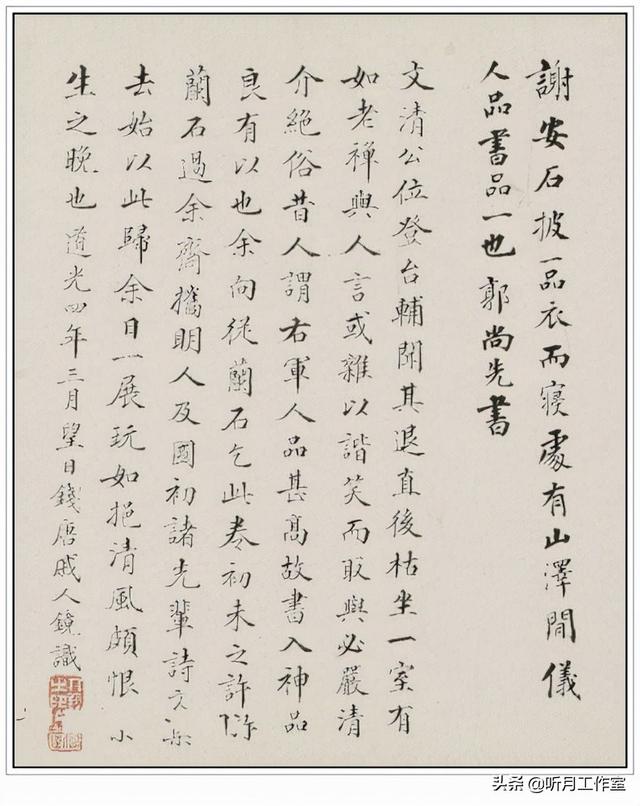 謝安石披一品衣而寢處有山澤間儀
人品書品一也郭尚先書
文清公位登台輔聞其退直後枯坐一室有
如老禪與人言或雜以諧笑而取與必嚴清
介絕俗昔人謂右軍人品甚高故書入神品
良有以也余向從蘭石乞此卷初未之許昨
蘭石過余齋攜明人及國初諸先輩詩文
去始以此歸余日一展玩如挹清風頗恨小
生之晚也道光四年三月望日錢唐戚人鏡識
头条 @听月工作室